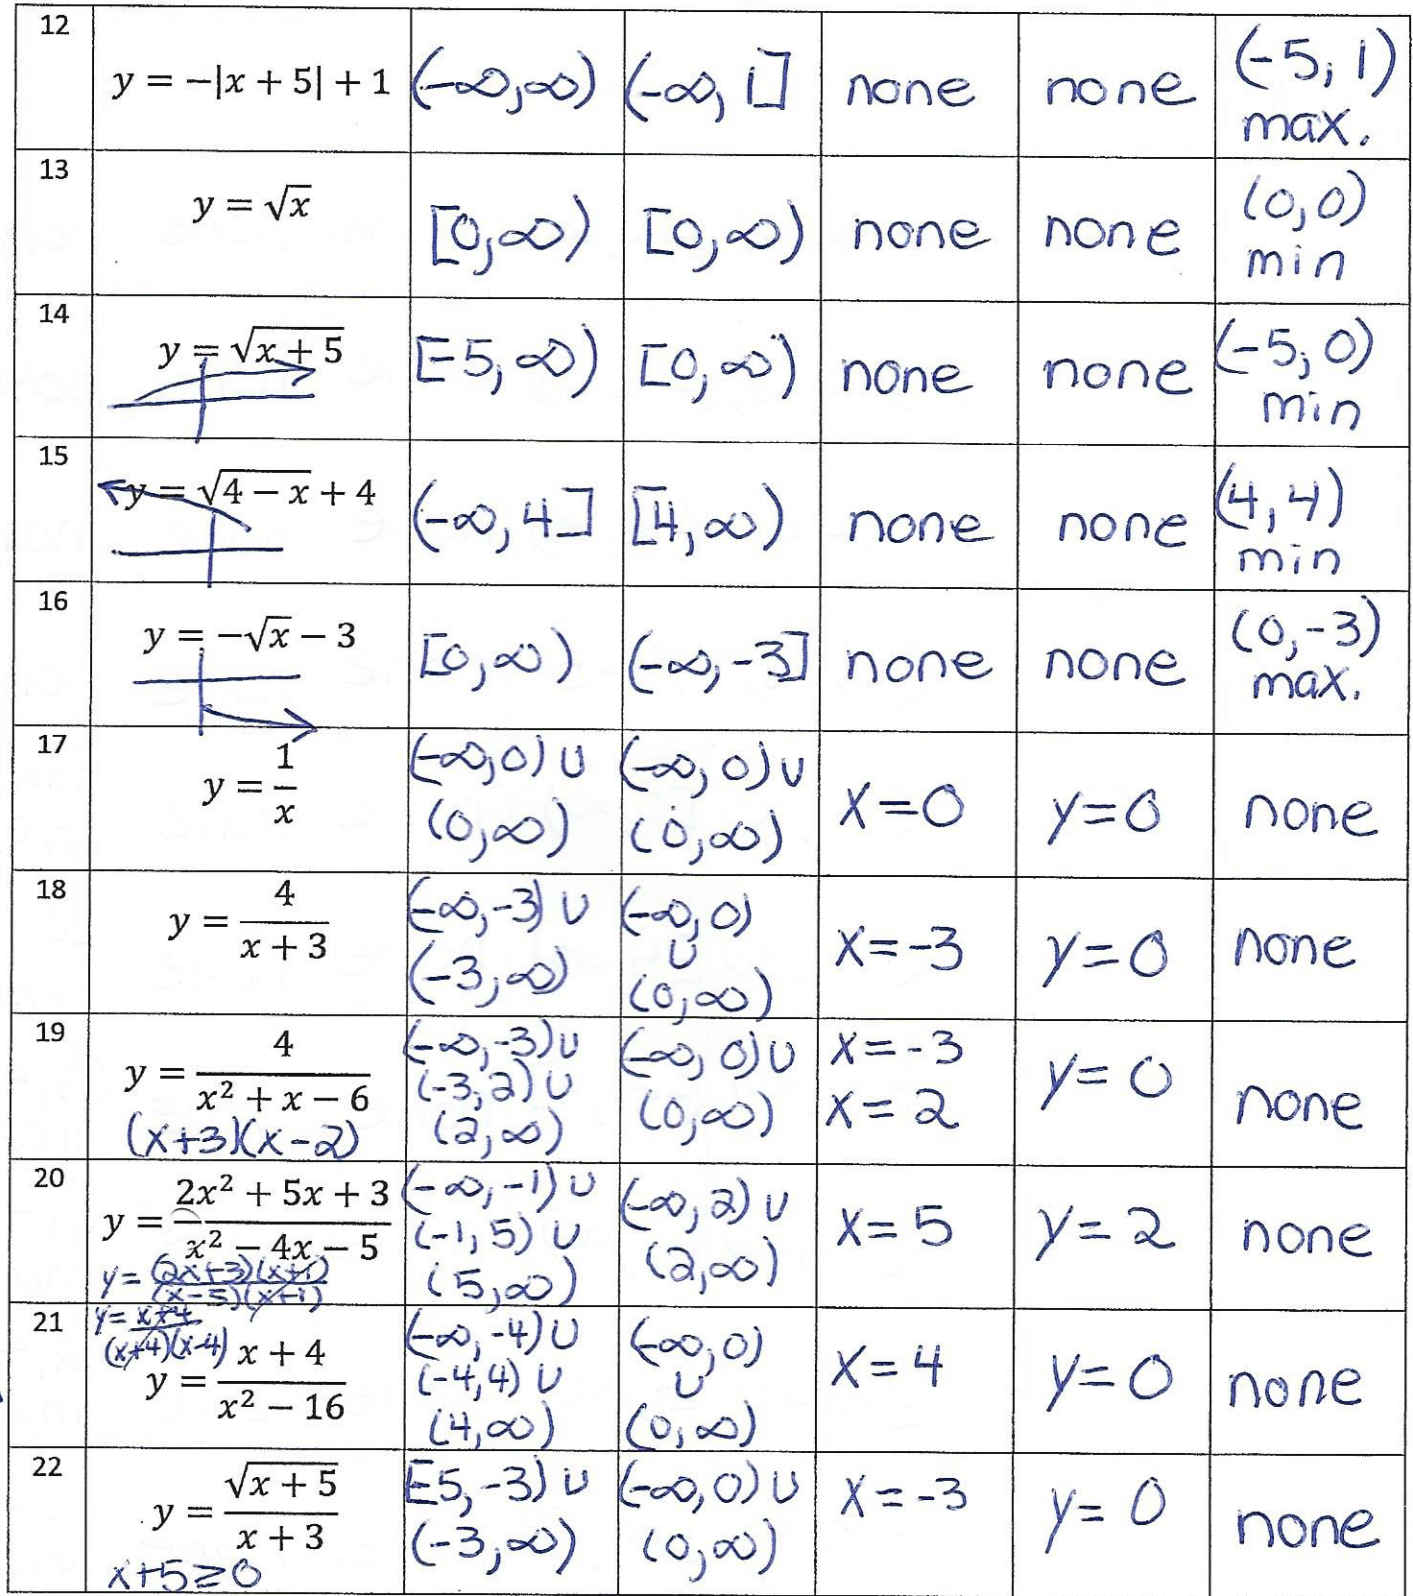 12
y = −|x + 5| + 1 (-∞,∞) (-∞, 1] none none (-5, 1) max.
13
y = √x [0,∞) [0,∞) none none (0,0) min
14
y = √(x + 5) [-5,∞) [0,∞) none none (-5,0) min
15
y = √(4 − x) + 4 (-∞,4] [4,∞) none none (4,4) min
16
y = −√x − 3 [0,∞) (-∞,-3] none none (0,-3) max.
17
y = 1/x (-∞,0) ∪ (0,∞) (-∞,0) ∪ (0,∞) x=0 y=0 none
18
y = 4/(x + 3) (-∞,-3) ∪ (-3,∞) (-∞,0) ∪ (0,∞) x=-3 y=0 none
19
y = 4/(x² + x − 6) (-∞,-3) ∪ (-3,2) ∪ (2,∞) (-∞,0) ∪ (0,∞) x=-3 x=2 y=0 none
(x+3)(x-2)
20
y = (2x² + 5x + 3)/(x² − 4x − 5) (-∞,-1) ∪ (-1,5) ∪ (5,∞) (-∞,2) ∪ (2,∞) x=5 y=2 none
y = (2x+3)(x+1)/(x-5)(x+1)
21
y = x+4/(x+4)(x-4)
y = (x + 4)/(x² − 16) (-∞,-4) ∪ (-4,4) ∪ (4,∞) (-∞,0) ∪ (0,∞) x=4 y=0 none
22
y = √(x + 5)/(x + 3) [-5,-3) ∪ (-3,∞) (-∞,0) ∪ (0,∞) x=-3 y=0 none
x+5≥0